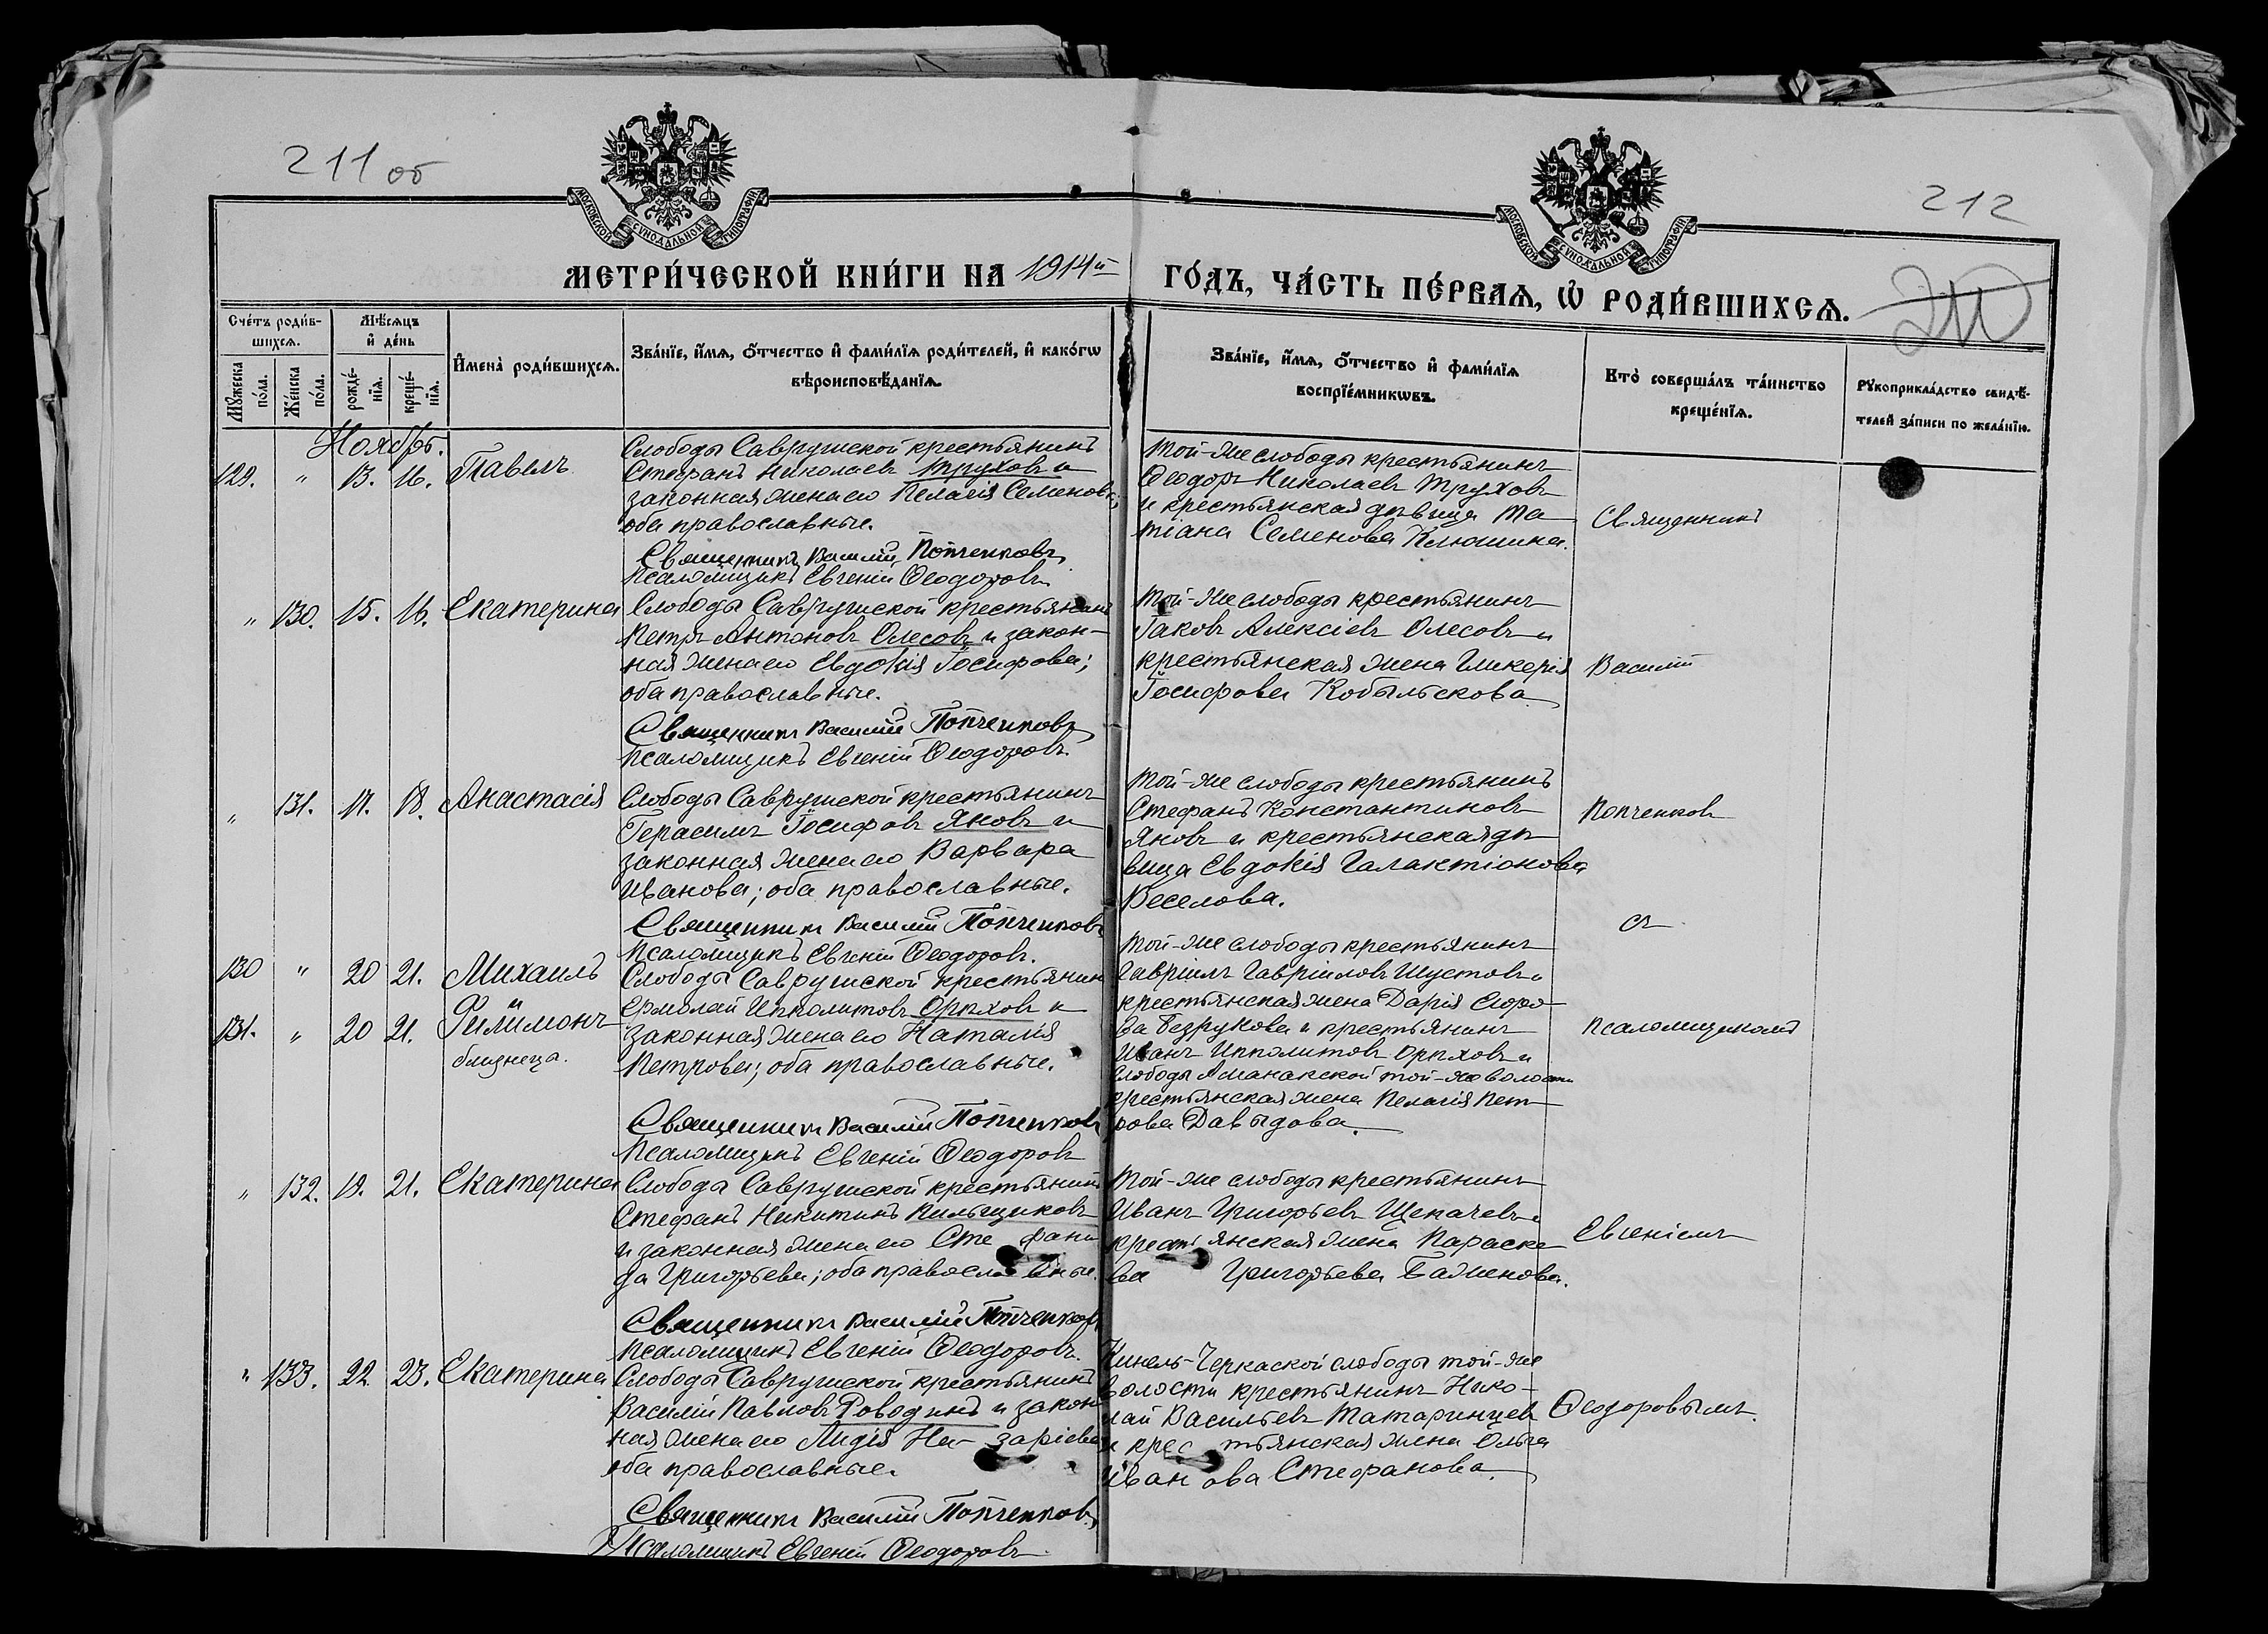 211 об
212
МОСКОВСКОЙ СѴНОДАЛЬНОЙ ТИПОГРАФІИ
МОСКОВСКОЙ СѴНОДАЛЬНОЙ ТИПОГРАФІИ
МЕТРИ́ЧЕСКОЙ КНИ́ГИ НА 1914й ГО́ДЪ, ЧА́СТЬ ПЕ́РВАѦ, Ѽ РОДИ́ВШИХСѦ.
Сче́тъ роди́в-
шихсѧ.
Мѣ́сяцъ
и҆ де́нь
Мꙋ́жеска
по́ла.
Же́нска
по́ла.
рожде́-
нїѧ.
креще́-
нїѧ.
И҆мена̀ роди́вшихсѧ.
Зва́нїе, и҆́мѧ, ѻ҆́тчество и҆ фами́лїѧ роди́телей, и҆ како́гѡ
вѣроисповѣ́данїѧ.
Зва́нїе, и҆́мѧ, ѻ҆́тчество и҆ фами́лїѧ
воспрїе́мникѡвъ.
Кто̀ соверша́лъ та́инство
креще́нїѧ.
Рꙋкоприкла́дство свидѣ́-
телей за́писи по жела́нїю.
Ноябрь.
129. " 13. 16. Павелъ
Слободы Саврушской крестьянинъ
Стефанъ Николаевъ Труховъ и
законная жена его Пелагія Семенова;
оба православные.
Священникъ Василій Попченковъ
Псаломщикъ Евгеній Ѳеодоровъ
Той-же слободы крестьянинъ
Ѳеодоръ Николаевъ Труховъ
и крестьянская дѣвица Та-
тіана Семенова Клюшина.
Священникъ
" 130. 15. 16. Екатерина
Слободы Саврушской крестьянинъ
Петръ Антоновъ Олесовъ и закон-
ная жена его Евдокія Іосифова;
оба православные.
Священникъ Василій Попченковъ
Псаломщикъ Евгеній Ѳеодоровъ.
Той-же слободы крестьянинъ
Іаковъ Алексіевъ Олесовъ и
крестьянская жена Гликерія
Іосифова Кобыльскова
Василій
" 131. 17. 18. Анастасія
Слободы Саврушской крестьянинъ
Герасимъ Іосифовъ Яновъ и
законная жена его Варвара
Иванова; оба православные.
Священникъ Василій Попченковъ
Псаломщикъ Евгеній Ѳеодоровъ.
Той-же слободы крестьянинъ
Стефанъ Константиновъ
Яновъ и крестьянская дѣ-
вица Евдокія Галактіонова
Веселова.
Попченковъ
съ
130 " 20 21. Михаилъ
и
131. " 20 21. Филимонъ
близнеца.
Слободы Саврушской крестьянинъ
Ермолай Ипполитовъ Орѣховъ и
законная жена его Наталія
Петрова; оба православные.
Священникъ Василій Попченковъ
Псаломщикъ Евгеній Ѳеодоровъ
Той-же слободы крестьянинъ
Гавріилъ Гавріиловъ Шустовъ и
крестьянская жена Дарія Сидоро-
ва Безрукова и крестьянинъ
Иванъ Ипполитовъ Орѣховъ и
слободы Аманакской той-же волости
крестьянская жена Пелагія Пет-
рова Давыдова.
Псаломщикомъ
" 132. 19. 21. Екатерина
Слободы Саврушской крестьянинъ
Стефанъ Никитинъ Пильщиковъ
и законная жена его Стефани-
да Григорьева; оба православные.
Священникъ Василій Попченковъ
Псаломщикъ Евгеній Ѳеодоровъ.
Той-же слободы крестьянинъ
Иванъ Григорьевъ Щепачевъ и
крестьянская жена Параске-
ва Григорьева Баженова.
Евгеніемъ
" 133. 22. 23. Екатерина
Слободы Саврушской крестьянинъ
Василій Павловъ Роводинъ и закон-
ная жена его Лидія Назаріева
оба православные.
Священникъ Василій Попченковъ
Псаломщикъ Евгеній Ѳеодоровъ
Кинель-Черкаской слободы той-же
волости крестьянинъ Нико-
лай Васильевъ Татаринцевъ
и крестьянская жена Ольга
Иванова Стефанова.
Ѳеодоровымъ.